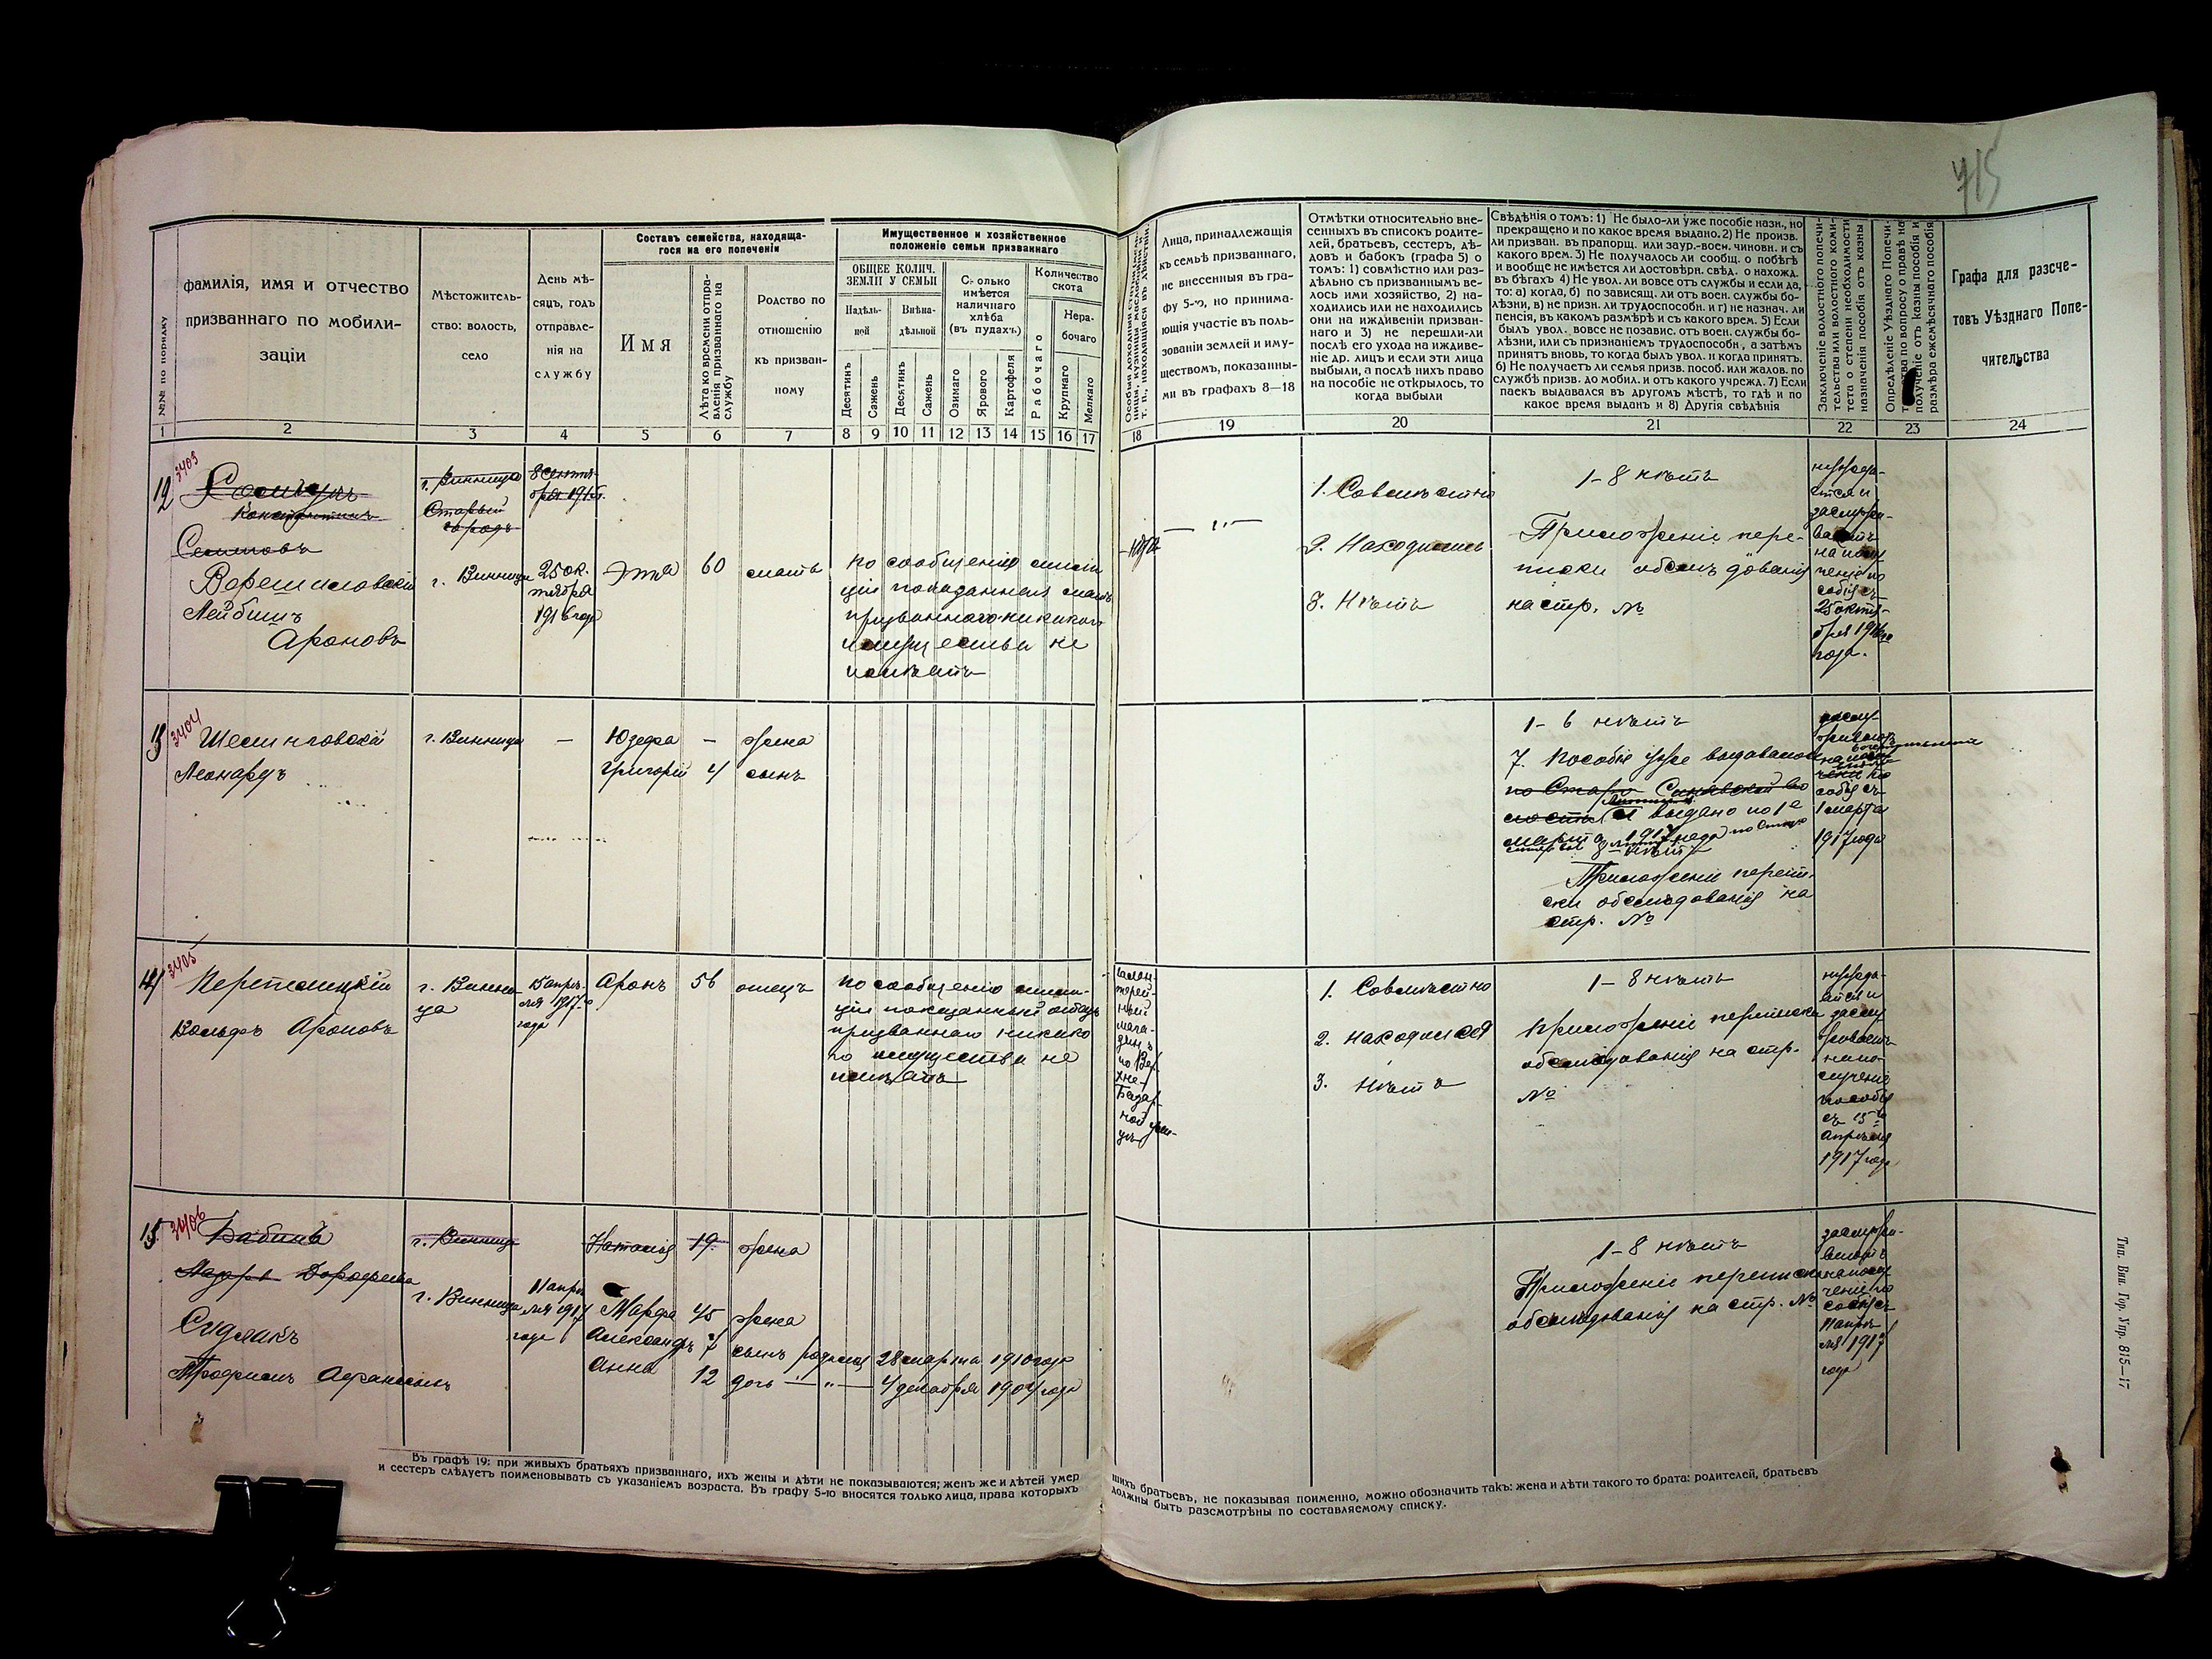 715
№№ по порядку
фамилія, имя и отчество
призваннаго по мобили-
заціи
Мѣстожитель-
ство: волость,
село
День мѣ-
сяцъ, годъ
отправле-
нія на
службу
Составъ семейства, находяща-
гося на его попеченіи
Имя
Лѣта ко времени отпра-
вленія призваннаго на
службу
Родство по
отношенію
къ призван-
ному
Имущественное и хозяйственное
положеніе семьи призваннаго
ОБЩЕЕ КОЛИЧ.
ЗЕМЛИ У СЕМЬИ
Надѣль-
ной
Внѣна-
дѣльной
Сколько
имѣется
наличнаго
хлѣба
(въ пудахъ)
Количество
скота
Нера-
бочаго
Десятинъ
Сажень
Десятинъ
Сажень
Озимаго
Ярового
Картофеля
Рабочаго
Крупнаго
Мелкаго
Лица, принадлежащія
къ семьѣ призваннаго,
не внесенныя въ гра-
фу 5-ю, но принима-
ющія участіе въ поль-
зованіи землей и иму-
ществомъ, показанны-
ми въ графахъ 8—18
Отмѣтки относительно вне-
сенныхъ въ списокъ родите-
лей, братьевъ, сестеръ, дѣ-
довъ и бабокъ (графа 5) о
томъ: 1) совмѣстно или раз-
дѣльно съ призваннымъ ве-
лось ими хозяйство, 2) на-
ходились или не находились
они на иждивеніи призван-
наго и 3) не перешли-ли
послѣ его ухода на иждиве-
ніе др. лицъ и если эти лица
выбыли, а послѣ нихъ право
на пособіе не открылось, то
когда выбыли
Свѣдѣнія о томъ: 1) Не было-ли уже пособіе назн., но
прекращено и по какое время выдано. 2) Не произв.
ли призван. въ прапорщ. или заур.-воен. чиновн. и съ
какого врем. 3) Не получалось ли сообщ. о побѣгѣ
и вообще не имѣется ли достовѣрн. свѣд. о нахожд.
въ бѣгахъ 4) Не увол. ли вовсе отъ службы и если да,
то: а) когда, б) по зависящ. ли отъ воен. службы бо-
лѣзни, в) не призн. ли трудоспособн. и г) не назнач. ли
пенсія, въ какомъ размѣрѣ и съ какого врем. 5) Если
былъ увол. вовсе не позавис. отъ воен. службы бо-
лѣзни, или съ признаніемъ трудоспособн., а затѣмъ
принятъ вновь, то когда былъ увол. и когда принятъ.
6) Не получаетъ ли семья призв. пособ. или жалов. по
службѣ призв. до мобил. и отъ какого учрежд. 7) Если
паекъ выдавался въ другомъ мѣстѣ, то гдѣ и по
какое время выданъ и 8) Другія свѣдѣнія
Заключеніе волостного попечи-
тельства или волостного коми-
тета о степени необходимости
назначенія пособія отъ казны
Опредѣленіе Уѣзднаго Попечи-
тельства по вопросу о правѣ на
полученіе отъ казны пособія и
размѣра ежемѣсячнаго пособія
Графа для разсче-
товъ Уѣзднаго Попе-
чительства
1 2 3 4 5 6 7 8 9 10 11 12 13 14 15 16 17 18 19 20 21 22 23 24
12 3403
Константинъ
г. Винница
Старый
городъ
8 сентя-
бря
Лейбишъ
Ароновъ
г. Винница
25 ок-
тября
1916 года
60
мать
по сообщенію
призваннаго никакого
имущества не
имѣетъ
нѣтъ
1. Совмѣстно
2. Находилась
3. Нѣтъ
1-8 нѣтъ
Приложеніе пере-
писки обслѣдованія
на стр. №
нуждает-
ся и
заслужи-
ваетъ
на полу-
ченіе по-
собія съ
25 октя-
бря 1916
года.
13 3404
Леонардъ
г. Винница
—
Юзефа — жена
Григорій 4 сынъ
1-6 нѣтъ
7. Пособіе уже выдавалось
выдано по 1е
марта 1917 года
Приложеніе перепи-
ски обслѣдованія на
стр. №
собія съ
1 марта
1917 года
14 3405
Перепелицкій
Вольфъ Ароновъ
г. Винни-
ца
15 апрѣ-
ля 1917
года
Аронъ 56 отецъ
по сообщенію
отецъ
призваннаго никако-
го имущества не
имѣетъ
1. Совмѣстно
2. Находился
3. Нѣтъ
1-8 нѣтъ
Приложеніе переписки
обслѣдованія на стр.
№
нуждает-
ся и
на по-
лученіе
пособія
съ 15го
апрѣля
1917 года
15 3406
Бабинъ
Лазарь Дорофеевъ
г. Винница
Наталія 19 жена
Судакъ
Трофимъ
г. Винница
11 апрѣ-
ля 1917
года
Марфа 45 жена
Александръ 7 сынъ родился 28 марта 1910 года
Анна 12 дочь —"— 4 декабря 1904 года
1-8 нѣтъ
Приложеніе переписки
обслѣдованія на стр. №
заслужи-
ваетъ
на полу-
ченіе по-
собія съ
11 апрѣ-
ля 1917
года
Въ графѣ 19: при живыхъ братьяхъ призваннаго, ихъ жены и дѣти не показываются; женъ же и дѣтей умер-
шихъ братьевъ, не показывая поименно, можно обозначить такъ: жена и дѣти такого то брата: родителей, братьевъ
и сестеръ слѣдуетъ поименовывать съ указаніемъ возраста. Въ графу 5-ю вносятся только лица, права которыхъ
должны быть разсмотрѣны по составляемому списку.
Тип. Вин. Гор. Упр. 815—17